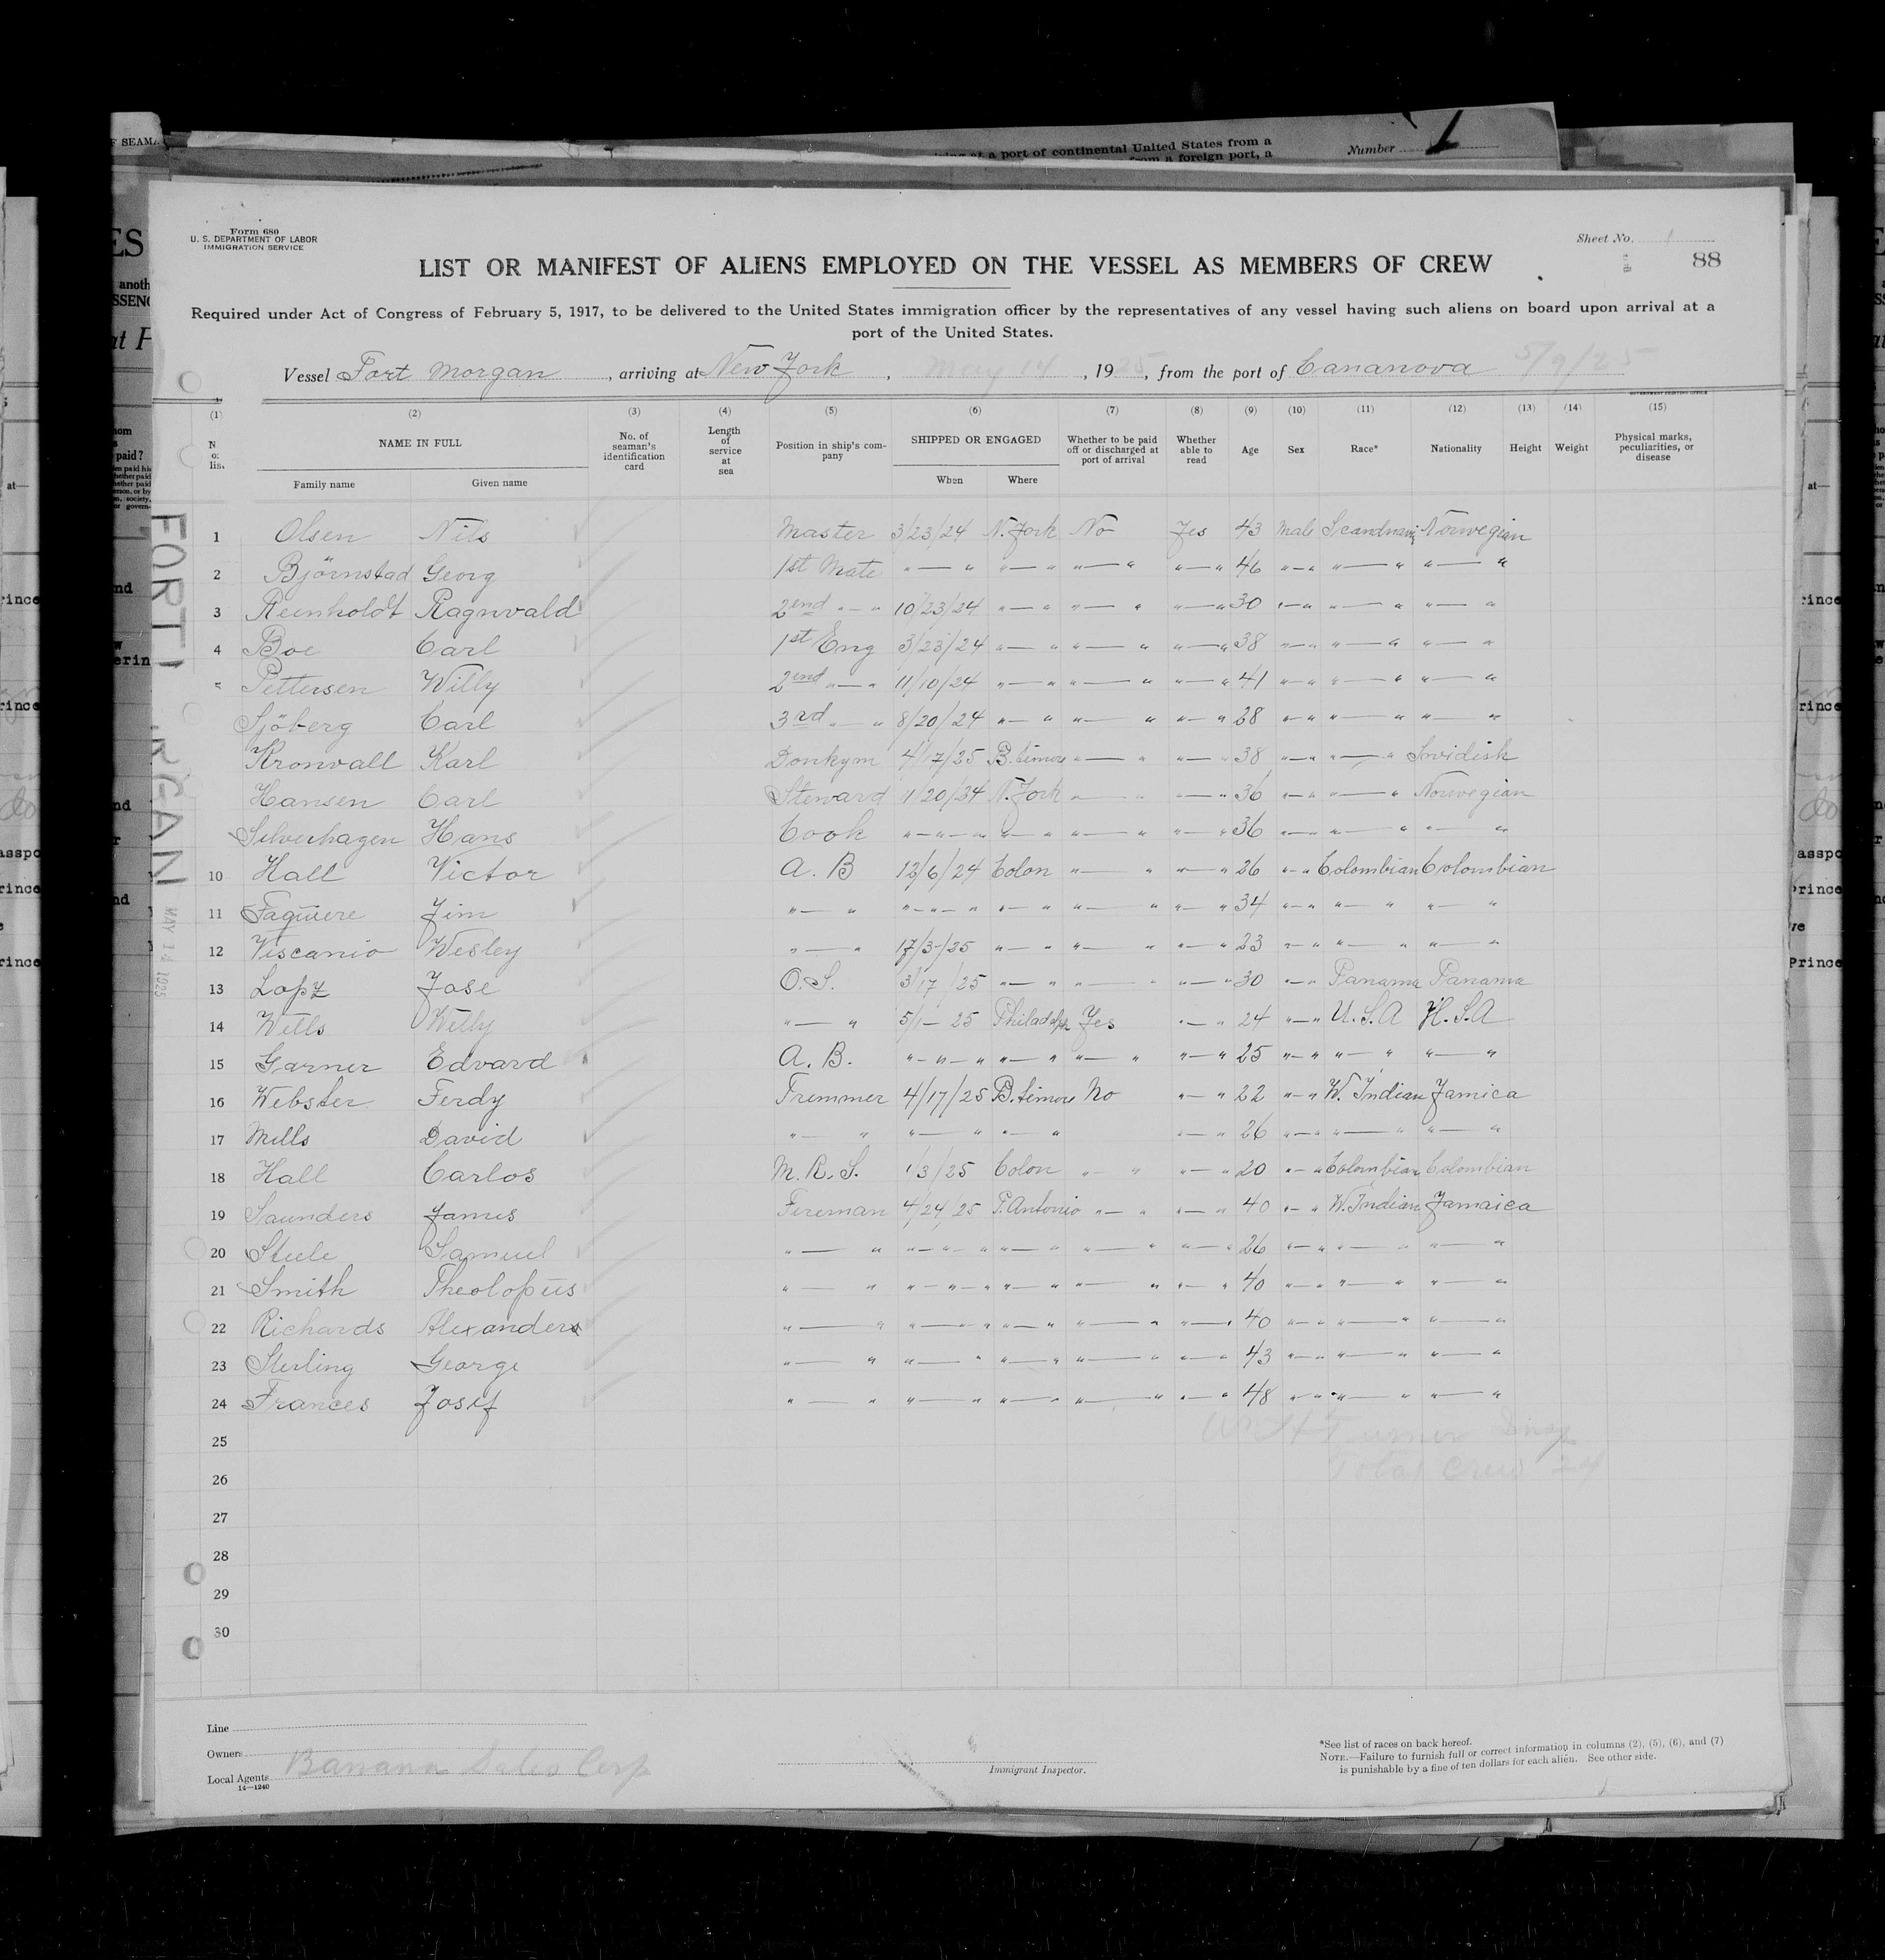 Number 1
Form 680
U. S. DEPARTMENT OF LABOR
IMMIGRATION SERVICE
Sheet No. 1
88
LIST OR MANIFEST OF ALIENS EMPLOYED ON THE VESSEL AS MEMBERS OF CREW
Required under Act of Congress of February 5, 1917, to be delivered to the United States immigration officer by the representatives of any vessel having such aliens on board upon arrival at a
port of the United States.
Vessel Fort Morgan, arriving at New York, May 14, 1925, from the port of Cananova 5/9/25
(1) (2) (3) (4) (5) (6) (7) (8) (9) (10) (11) (12) (13) (14) (15)
NAME IN FULL Family name Given name No. of seaman's identification card Length of service at sea Position in ship's company SHIPPED OR ENGAGED When Where Whether to be paid off or discharged at port of arrival Whether able to read Age Sex Race* Nationality Height Weight Physical marks, peculiarities, or disease
1 Olsen Nils Master 3/23/24 N. York No Yes 43 Male Scandnavi Norwegian
2 Björnstad Georg 1st Mate " — " " — " " — " " — " 46 " — " " — " " — "
3 Reinholdt Ragnvald 2end " — " 10/23/24 " — " " — " " — " 30 " — " " — " " — "
4 Boe Carl 1st Eng 3/23/24 " — " " — " " — " 38 " — " " — " " — "
5 Pettersen Willy 2end " — " 11/10/24 " — " " — " " — " 41 " — " " — " " — "
Sjöberg Carl 3rd " — " 8/20/24 " — " " — " " — " 28 " — " " — " " — "
Kronvall Karl Donkym 4/17/25 B.timore " — " " — " 38 " — " " — " Swidish
Hansen Carl Steward 1/20/24 N. York " — " " — " 36 " — " " — " Norwegian
Silverhagen Hans Cook " — " — " " — " " — " " — " 36 " — " " — " " — "
10 Hall Victor A. B 12/6/24 Colon " — " " — " 26 " — " Colombian Colombian
11 Faquiere Jim " — " " — " — " " — " " — " " — " 34 " — " " — " " — "
12 Viscanio Wesley " — " 17/3-/25 " — " " — " " — " 23 " — " " — " " — "
13 Lopz Jose O.S. 3/17/25 " — " " — " " — " 30 " — " Panama Panama
14 Wells Willy " — " 5/1-25 Philadelph Yes " — " 24 " — " U.S.A U.S.A
15 Garner Edvard A. B. " — " — " " — " " — " " — " 25 " — " " — " " — "
16 Webster Ferdy Tremmer 4/17/25 B.timore No " — " 22 " — " W. Indian Jamica
17 Mills David " — " " — " " — " " — " 26 " — " " — " " — "
18 Hall Carlos M.R.S. 1/3/25 Colon " — " " — " 20 " — " Colombian Colombian
19 Saunders James Fireman 4/24/25 P. Antonio " — " " — " 40 " — " W. Indian Jamaica
20 Steele Samuel " — " " — " — " " — " " — " " — " 26 " — " " — " " — "
21 Smith Theolopus " — " " — " — " " — " " — " " — " 40 " — " " — " " — "
22 Richards Alexanders " — " " — " — " " — " " — " " — " 40 " — " " — " " — "
23 Sterling George " — " " — " " — " " — " " — " 43 " — " " — " " — "
24 Frances Josef " — " " — " " — " " — " " — " 48 " — " " — " " — "
25
Turner Insp
26
Total Crew 24
27
28
29
30
FORT MORGAN MAY 14 1925
Line
Owners
Local Agents Banana Sales Corp
14—1240
Immigrant Inspector.
*See list of races on back hereof.
NOTE.—Failure to furnish full or correct information in columns (2), (5), (6), and (7)
is punishable by a fine of ten dollars for each alien. See other side.